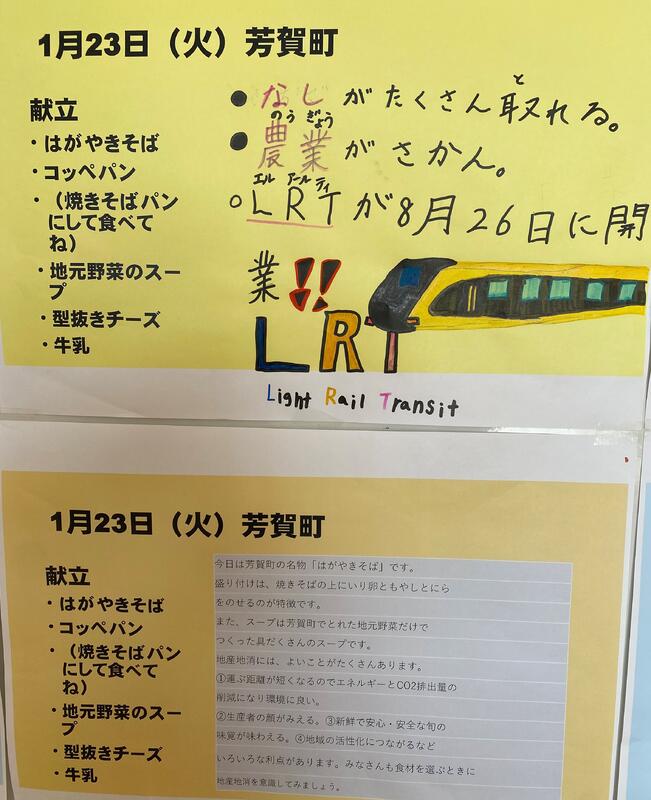 1月23日（火）芳賀町
献立
・はがやきそば
・コッペパン
・（焼きそばパン
にして食べて
ね）
・地元野菜のスー
プ
・型抜きチーズ
・牛乳
● なしがたくさん取れる。
と
● 農業がさかん。
のう ぎょう
○ LRTが8月26日に開
エル アール ティ
業!!
LRT
Light Rail Transit
1月23日（火）芳賀町
献立
・はがやきそば
・コッペパン
・（焼きそばパン
にして食べて
ね）
・地元野菜のスー
プ
・型抜きチーズ
・牛乳
今日は芳賀町の名物「はがやきそば」です。
盛り付けは、焼きそばの上にいり卵ともやしとにら
をのせるのが特徴です。
また、スープは芳賀町でとれた地元野菜だけで
つくった具だくさんのスープです。
地産地消には、よいことがたくさんあります。
①運ぶ距離が短くなるのでエネルギーとCO2排出量の
削減になり環境に良い。
②生産者の顔がみえる。③新鮮で安心・安全な旬の
味覚が味わえる。④地域の活性化につながるなど
いろいろな利点があります。みなさんも食材を選ぶときに
地産地消を意識してみましょう。